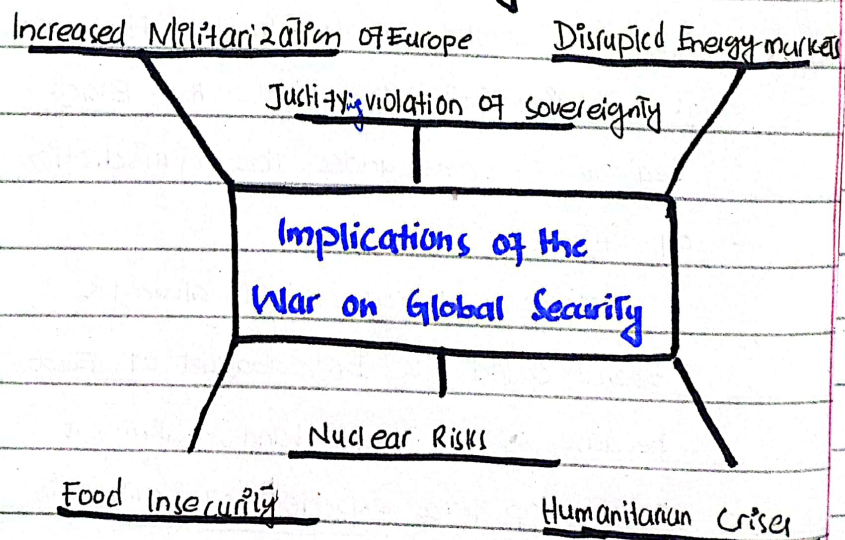 Increased Militarization of Europe
Disrupted Energy markets
Justifying violation of sovereignty
Implications of the
War on Global Security
Nuclear Risks
Food Insecurity
Humanitarian Crises